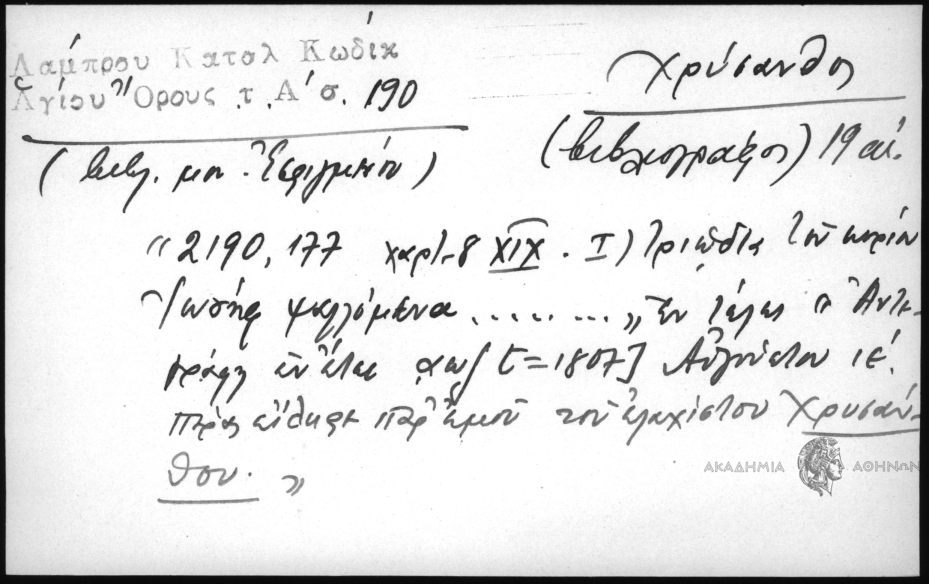 Λάμπρου Κατολ Κώδικ
Ἁγίου Ὄρους τ. Α´ σ. 190
Χρύσανθος
(βιβλ. μον. Ἐσφιγμένου)
(βιβλιογράφος) 19 αἰ.
"2190, 177 χαρτ. 8 XIX. I) Τριῴδια τοῦ κυρίου
Ἰωσὴφ ψαλλόμενα ......... „Ἐν τέλει " Ἀντε-
γράφη ἐν ἔτει αωζ [=1807] Αὐγούστου ιε´.
πέρας εἴληφε παρ' ἐμοῦ τοῦ ἐλαχίστου Χρυσάν-
θου. "
ΑΚΑΔΗΜΙΑ ΑΘΗΝΩΝ